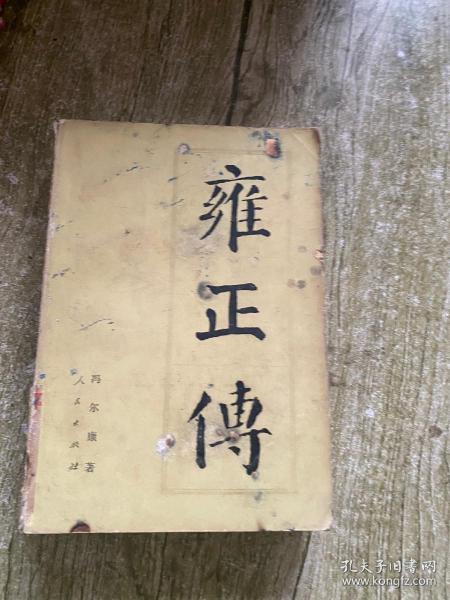 雍正傳
冯尔康著
人民出版社
孔夫子旧书网
www.kongfz.com